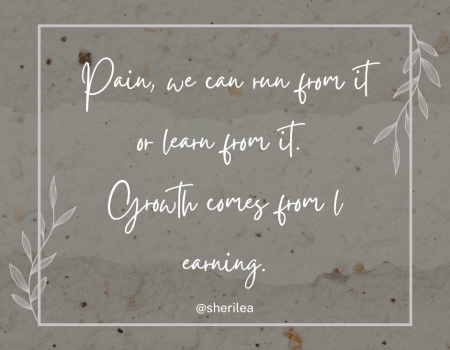 Pain, we can run from it
or learn from it.
Growth comes from l
earning.
@sherilea